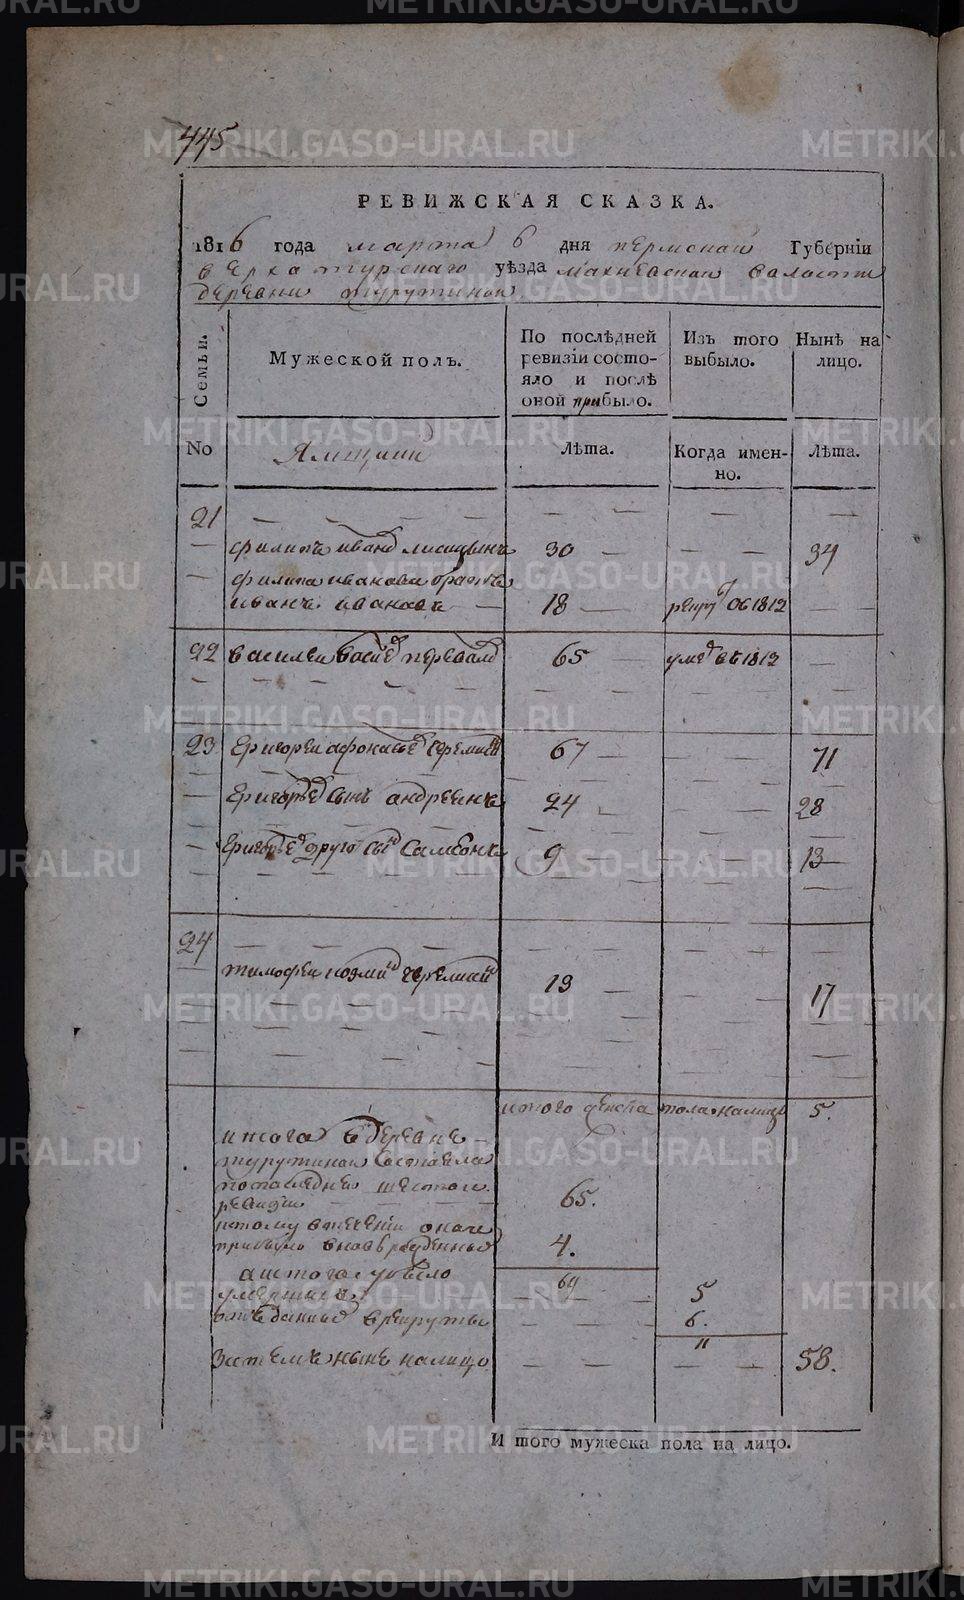 445
РЕВИЖСКАЯ СКАЗКА.
1816 года марта 6 дня пермской Губерніи
верхотурскаго уѣзда махневской валости
деревни турутиной
Семьи.
Мужеской полъ.
По послѣдней ревизіи состояло и послѣ оной прибыло.
Изъ того выбыло.
Нынѣ на лицо.
No
Ямщики
Лѣта.
Когда именно.
Лѣта.
21
филипъ иванов лисицынъ 30 34
филипа иванова братъ
иванъ ивановъ 18 1812
22 василеи васи перевал 65 уме въ 1812
23 григореи афонасье черемны 67 71
григорье сынъ андреянъ 24 28
григорье друго сы самсонъ 9 13
24
тимофеи козми черемны 13 17
итого мужеска пола налицо 5.
итого в деревне
турутиной состояло
по последней шестой
ревизии 65.
к тому в течении оной
прибыло вновь рожденных 4.
69
а из того убыло
умершихъ 5
отданных в рекруты 6.
11
за темъ ныне налицо 58.
И того мужеска пола на лицо.
METRIKI.GASO-URAL.RU